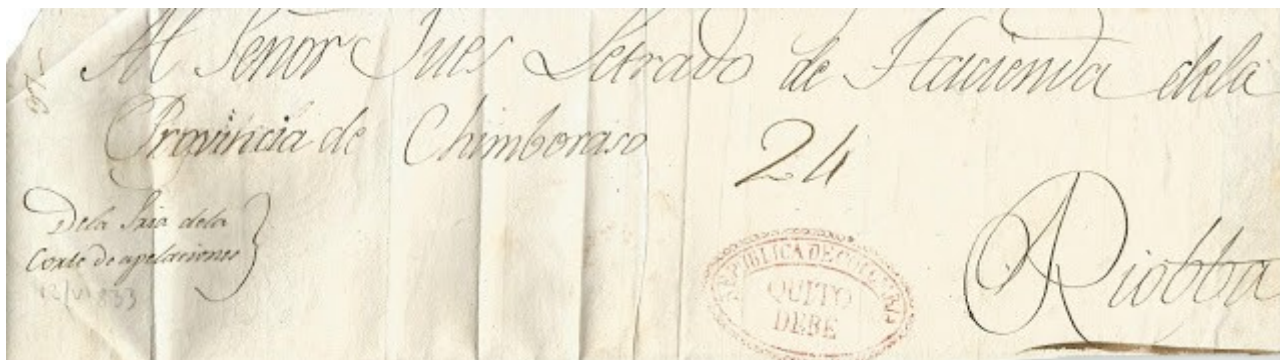 Al Señor Jues Letrado de Hacienda dela
Provincia de Chimboraso
24
Dela Sria dela
Corte de apelaciones
12/VI 833
REPUBLICA DE COLOMBIA
QUITO
DEBE
Riobba